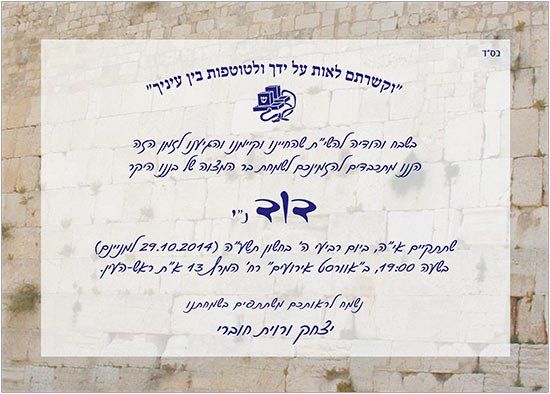 בס"ד
"וקשרתם לאות על ידך ולטוטפות בין עיניך"
בשבח והודיה להשי"ת שהחיינו וקיימנו והגיענו לזמן הזה
הננו מתכבדים להזמינכם לשמחת בר המצוה של בננו היקר
דוד נ"י
שתתקיים אי"ה, ביום רביעי ה' בחשון תשע"ה (29.10.2014 למניינם)
בשעה 19:00, ב"אוורסט אירועים" רח' המרץ 13 א"ת ראש-העין.
נשמח לראותכם משתתפים בשמחתנו
יצחק ורוית חוברי